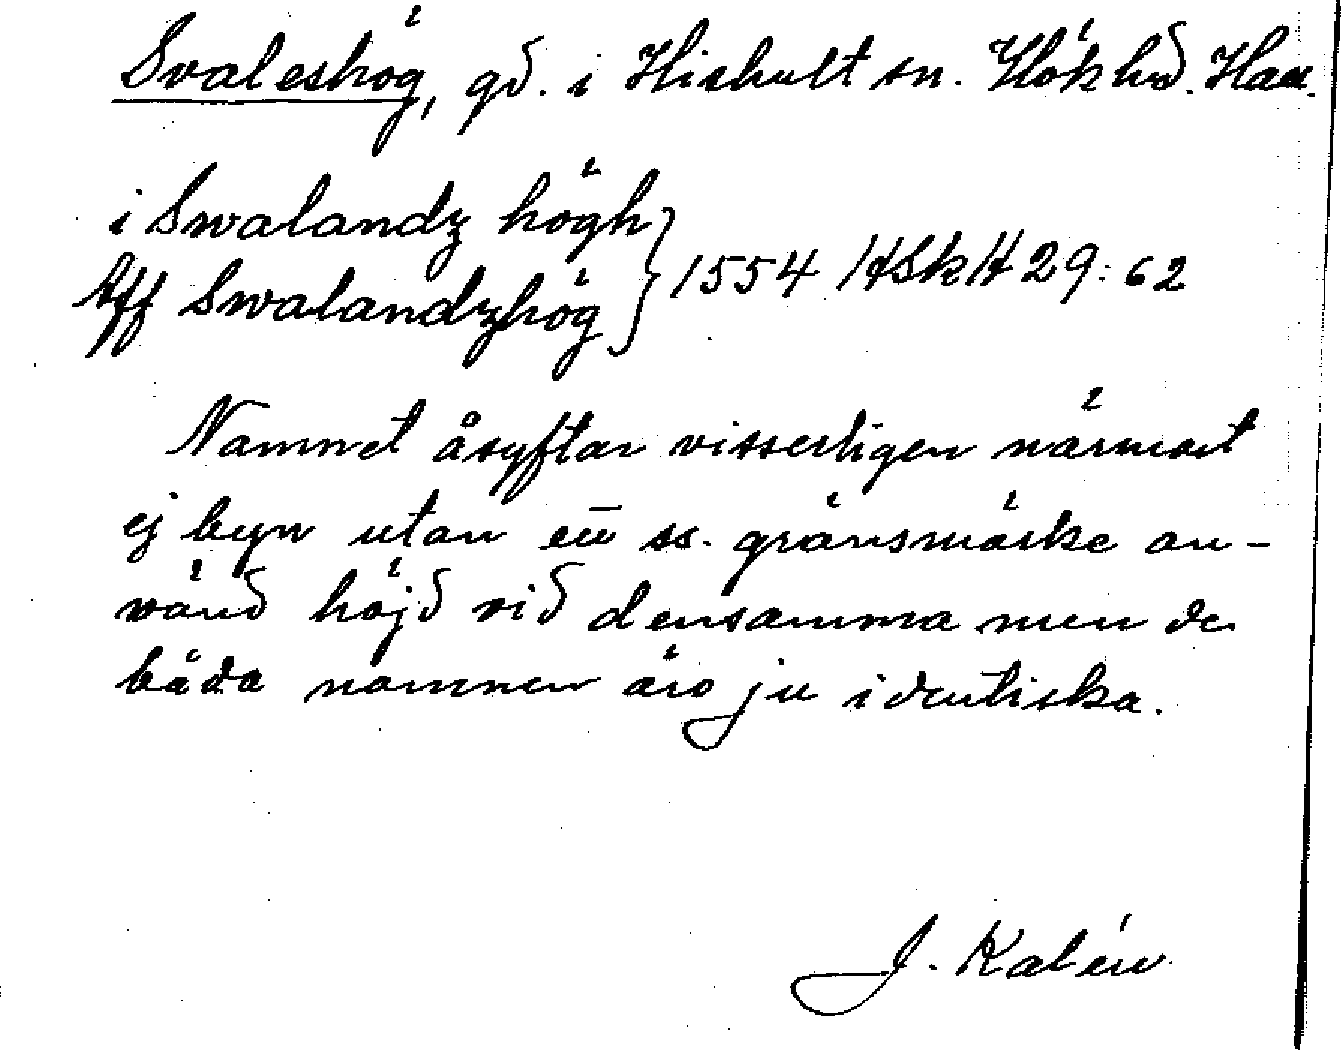 Svaleshög, gd. i Hishult sn. Höks hd. Hall.
i Swalandz högh
Aff Swalandzhög } 1554 HSkH 29:62
Namnet åsyftar visserligen närmast
ej byn utan en ss. gränsmärke an-
vänd höjd vid densamma men de
båda namnen äro ju identiska.
J. Kalén